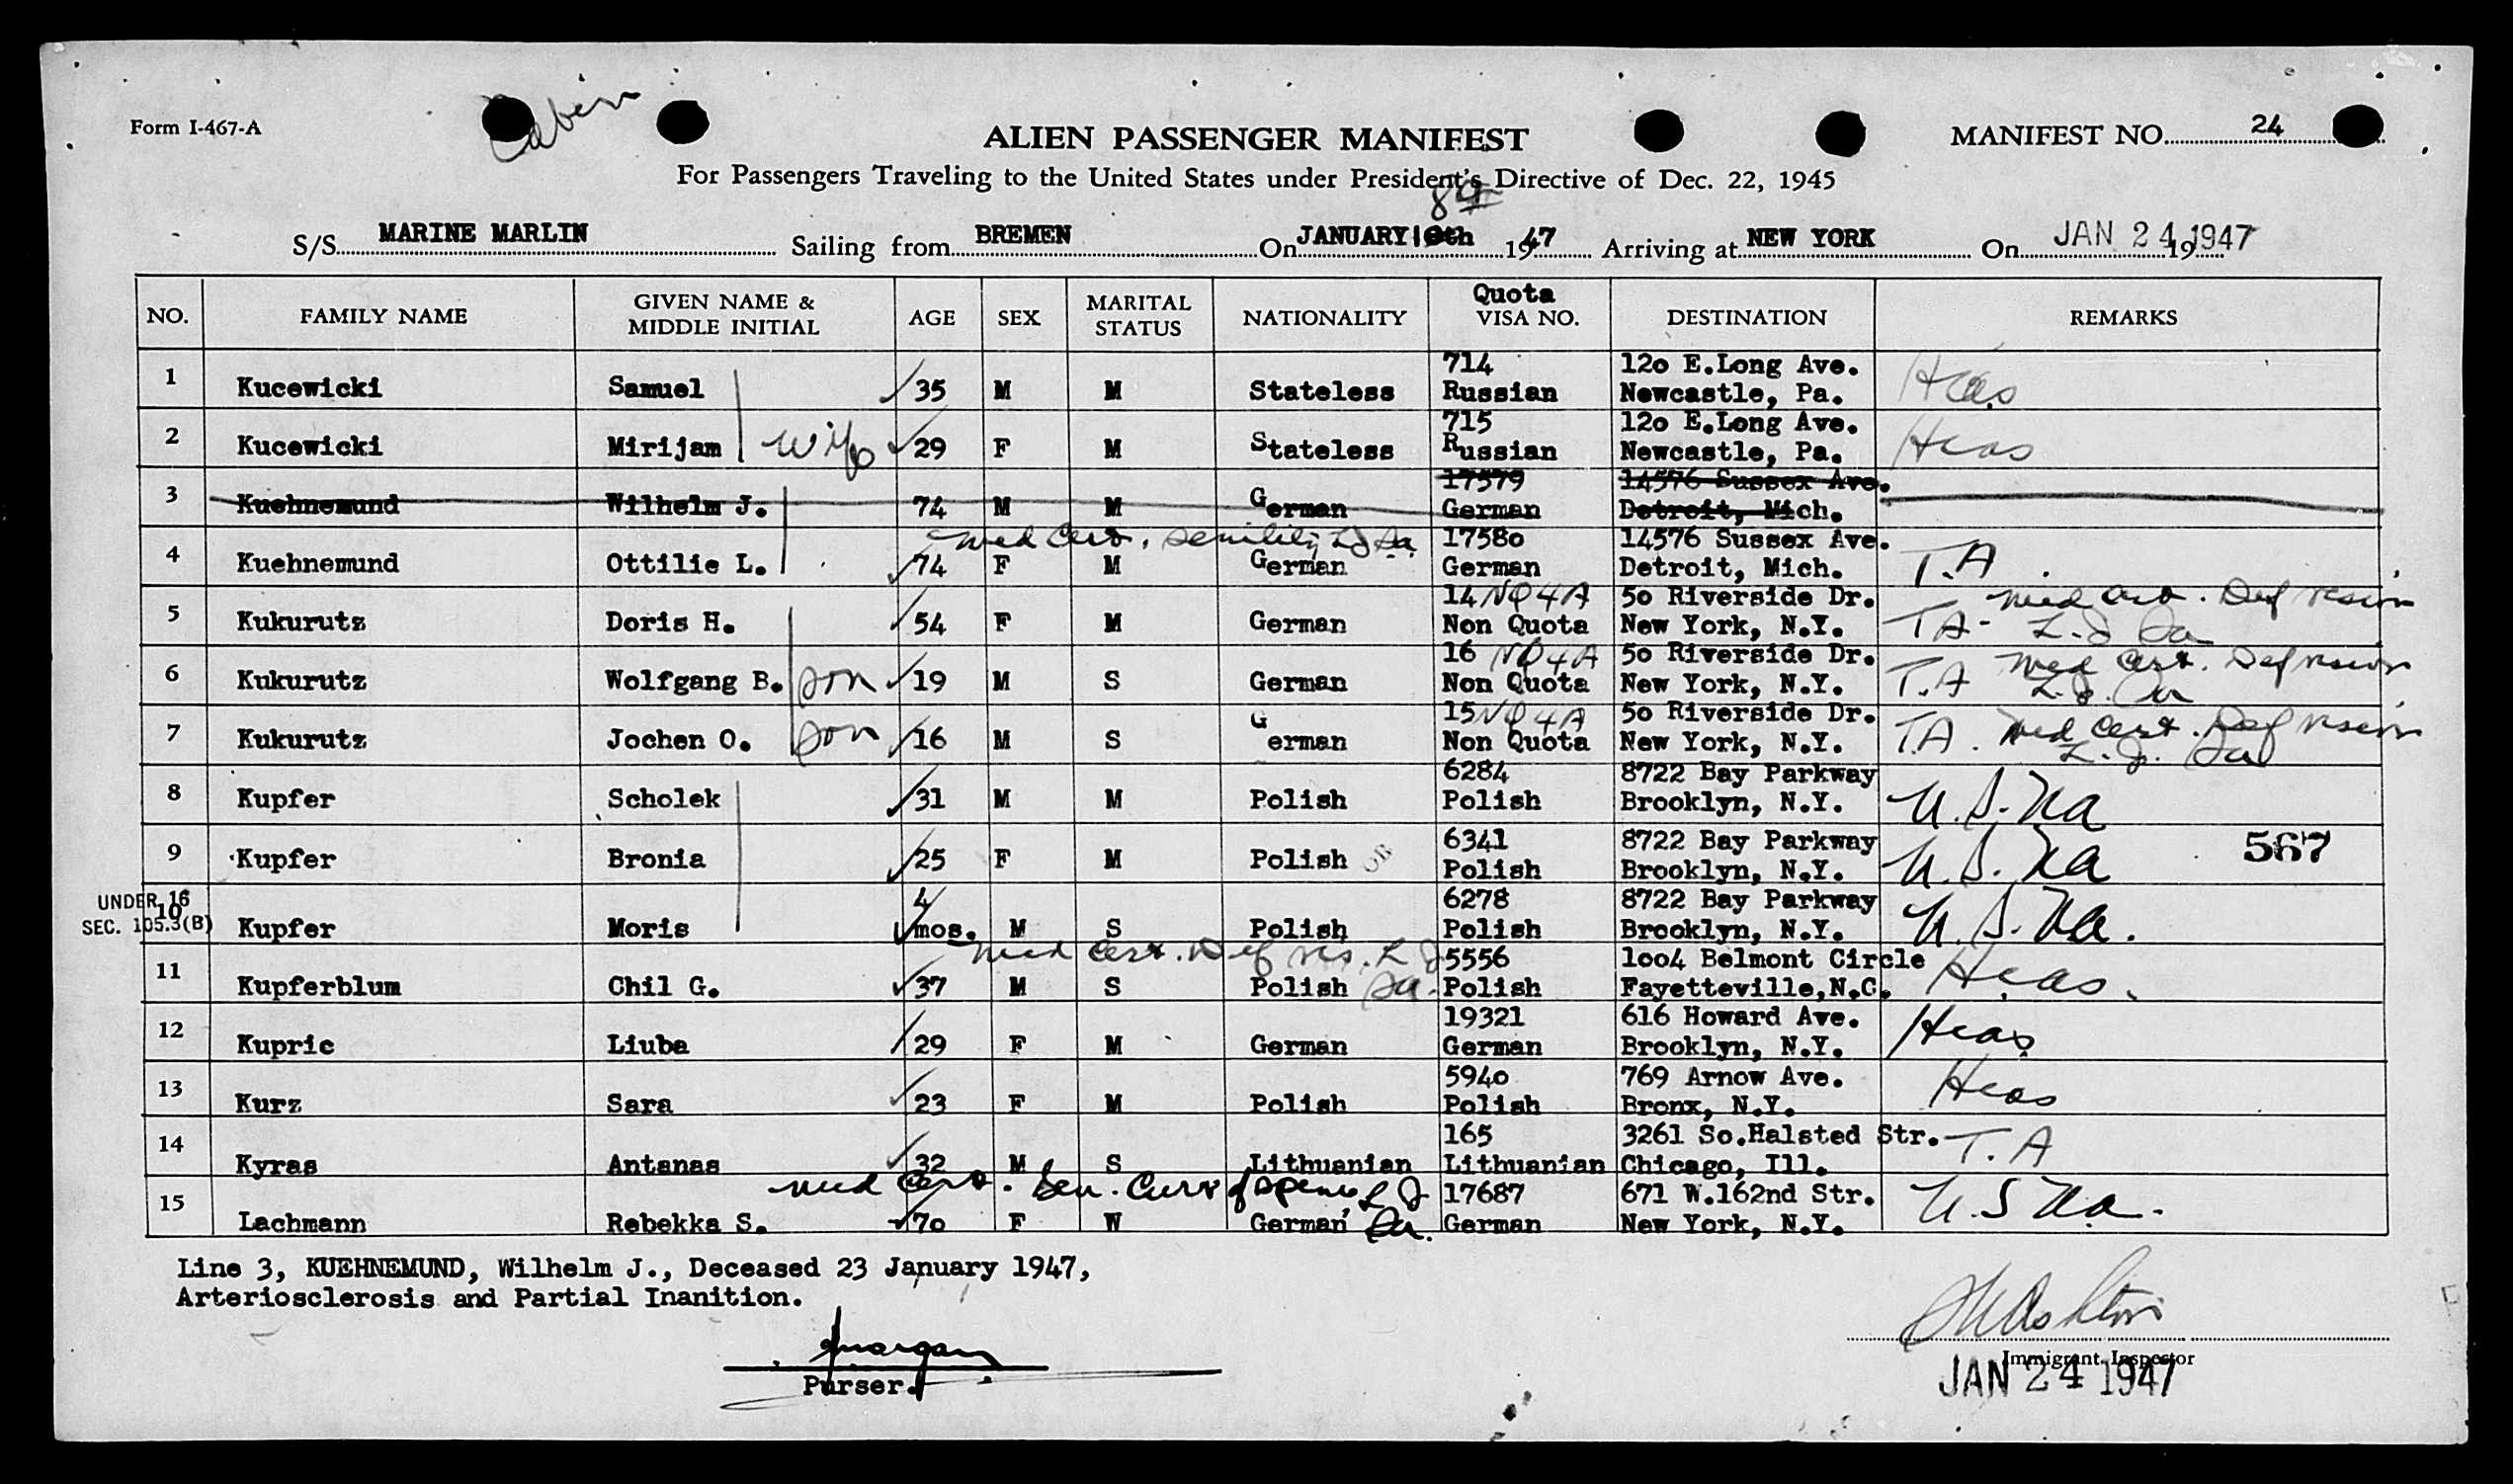 Cabin
Form I-467-A
ALIEN PASSENGER MANIFEST
MANIFEST NO. 24
For Passengers Traveling to the United States under President's Directive of Dec. 22, 1945
S/S MARINE MARLIN Sailing from BREMEN On JANUARY 10th 19 47 Arriving at NEW YORK On JAN 24 1947 19
NO. FAMILY NAME GIVEN NAME & MIDDLE INITIAL AGE SEX MARITAL STATUS NATIONALITY Quota VISA NO. DESTINATION REMARKS
714 12o E.Long Ave.
1 Kucewicki Samuel 35 M M Stateless Russian Newcastle, Pa. Hias
715 12o E.Long Ave.
2 Kucewicki Mirijam wife 29 F M Stateless Russian Newcastle, Pa. Hias
17579 14576 Sussex Ave.
3 Kuehnemund Wilhelm J. 74 M M German German Detroit, Mich.
Med Cert. Senility 1758o 14576 Sussex Ave.
4 Kuehnemund Ottilie L. 74 F M German German Detroit, Mich. T.A
14 NQ4A 5o Riverside Dr. Med Cert. Def vision
5 Kukurutz Doris H. 54 F M German Non Quota New York, N.Y. TA-
16 NQ4A 5o Riverside Dr. Med Cert. Def vision
6 Kukurutz Wolfgang B. son 19 M S German Non Quota New York, N.Y. T.A
15 NQ4A 5o Riverside Dr. Med Cert. Def vision
7 Kukurutz Jochen O. son 16 M S German Non Quota New York, N.Y. T.A.
6284 8722 Bay Parkway
8 Kupfer Scholek 31 M M Polish Polish Brooklyn, N.Y. U.S.Na
6341 8722 Bay Parkway
9 Kupfer Bronia 25 F M Polish Polish Brooklyn, N.Y. U.S.Na 567
UNDER 16 4 6278 8722 Bay Parkway
SEC. 105.3(B) 10 Kupfer Moris mos. M S Polish Polish Brooklyn, N.Y. U.S.Na.
Med Cert. Def vis. 5556 1oo4 Belmont Circle
11 Kupferblum Chil G. 37 M S Polish Polish Fayetteville,N.C. Hias.
19321 616 Howard Ave.
12 Kupric Liuba 29 F M German German Brooklyn, N.Y. Hias
594o 769 Arnow Ave.
13 Kurz Sara 23 F M Polish Polish Bronx, N.Y. Hias
165 3261 So.Halsted Str.
14 Kyras Antanas 32 M S Lithuanian Lithuanian Chicago, Ill. T.A
Med Cert. Sen. Curv of spine 17687 671 W.162nd Str.
15 Lachmann Rebekka S. 7o F W German German New York, N.Y. U.S Na.
Line 3, KUEHNEMUND, Wilhelm J., Deceased 23 January 1947,
Arteriosclerosis and Partial Inanition.
Purser.
Immigrant Inspector
JAN 24 1947